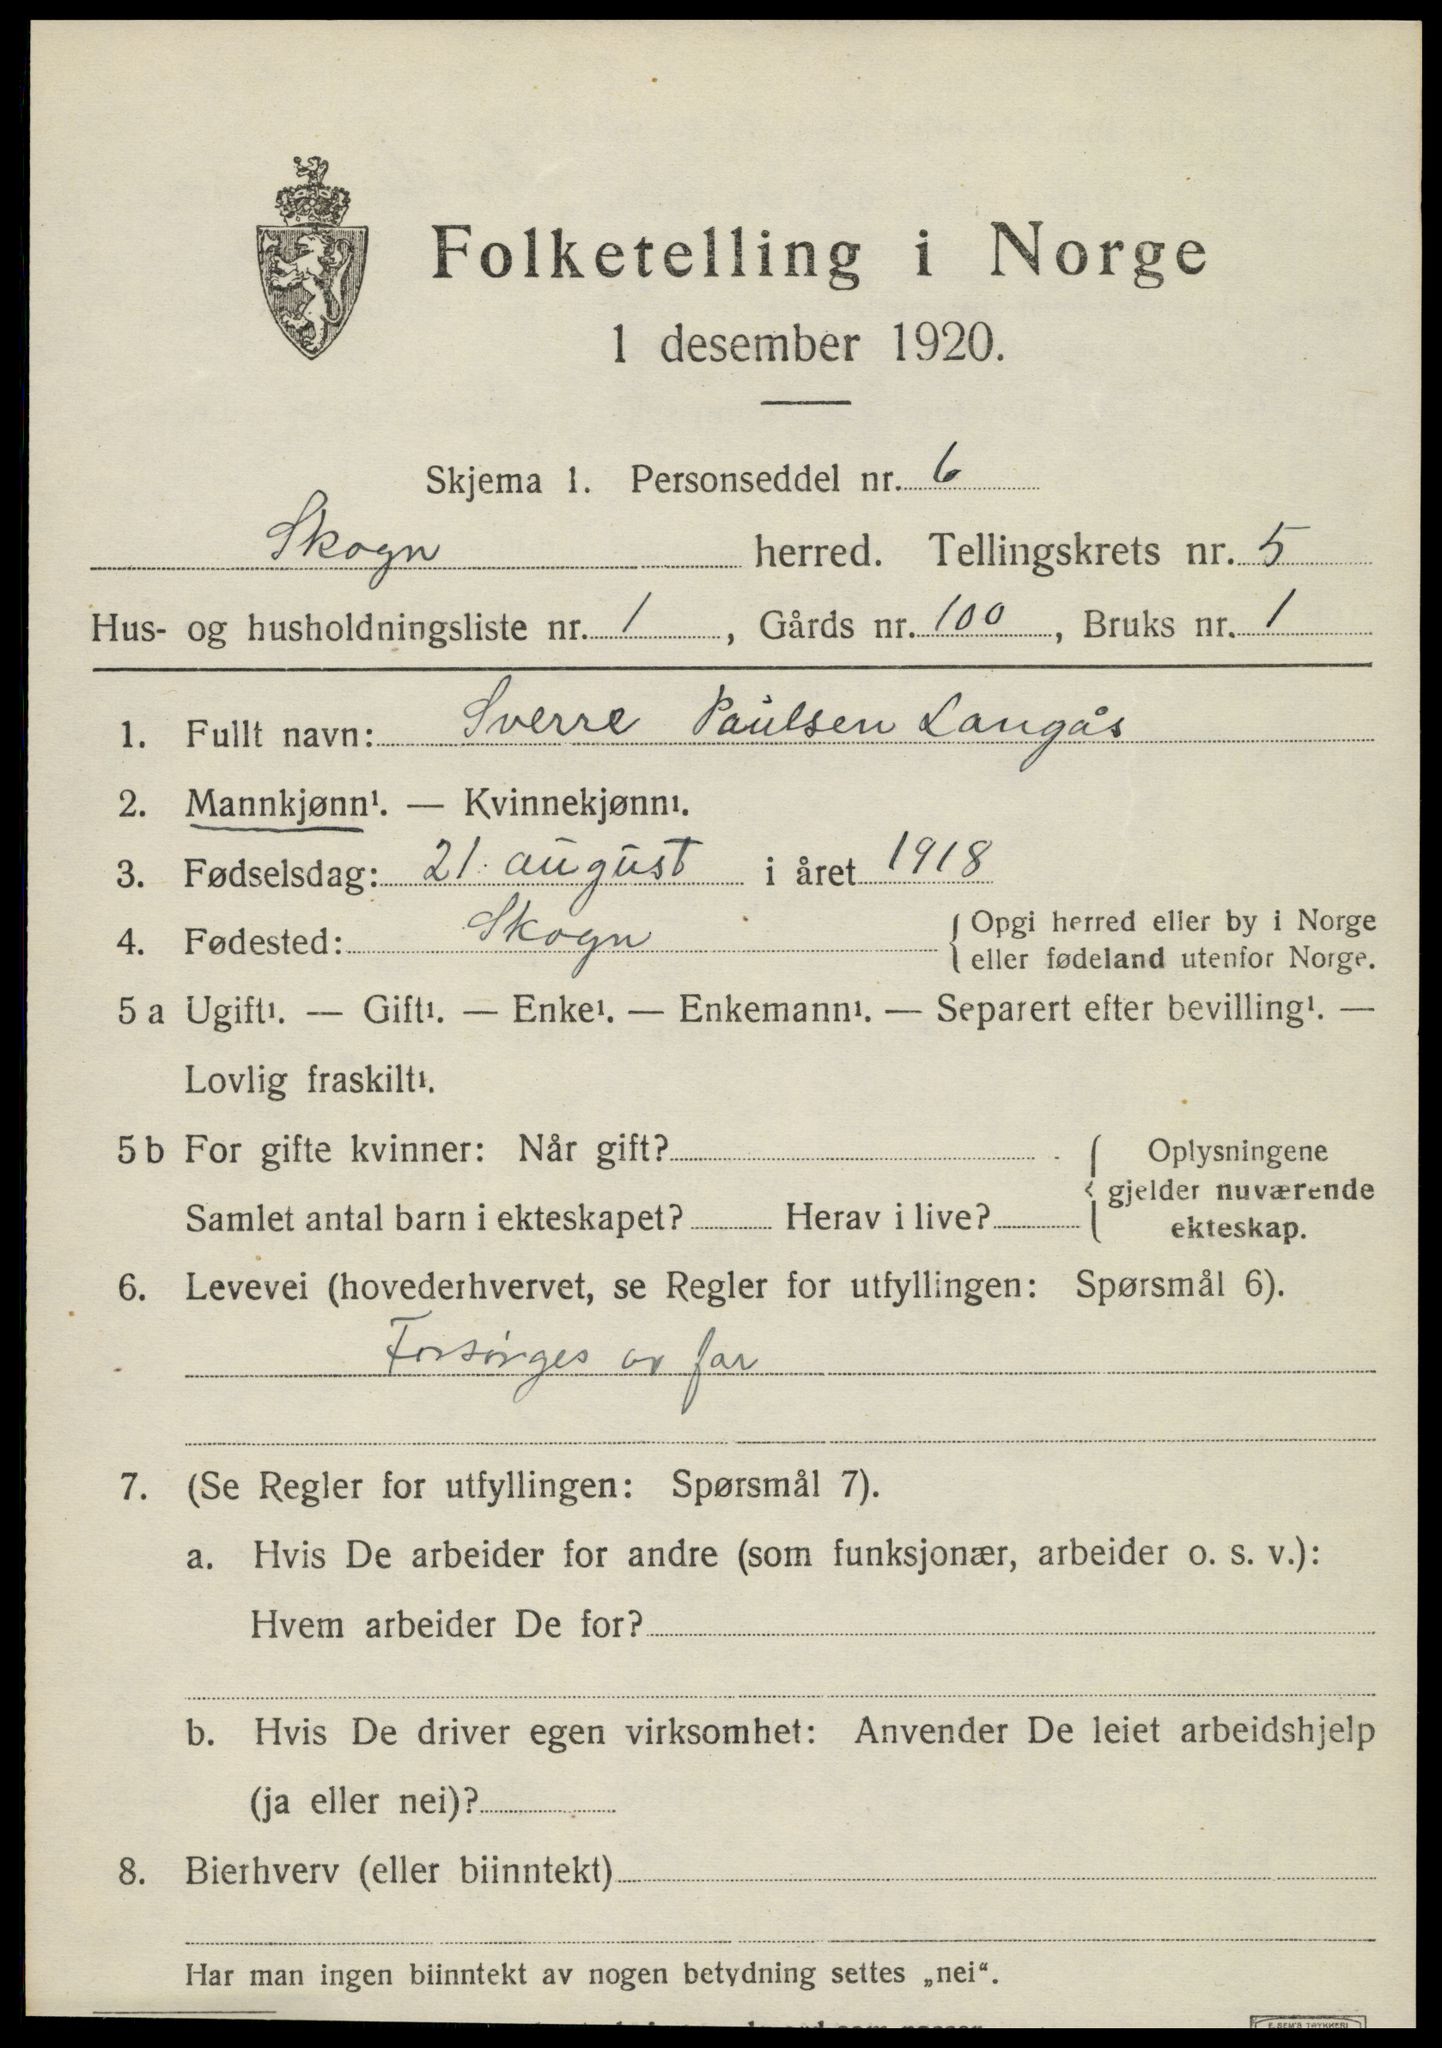 Folketelling i Norge
1 desember 1920.
Skjema 1. Personseddel nr. 6
Skogn herred. Tellingskrets nr. 5
Hus- og husholdningsliste nr. 1, Gårds nr. 100, Bruks nr. 1
1. Fullt navn: Sverre Paulsen Langås
2. Mannkjønn¹. — Kvinnekjønn¹.
3. Fødselsdag: 21. august i året 1918
4. Fødested: Skogn { Opgi herred eller by i Norge
eller fødeland utenfor Norge.
5 a Ugift¹. — Gift¹. — Enke¹. — Enkemann¹. — Separert efter bevilling¹. —
Lovlig fraskilt¹.
5 b For gifte kvinner: Når gift? { Oplysningene
gjelder nuværende
Samlet antal barn i ekteskapet? Herav i live? ekteskap.
6. Levevei (hovederhvervet, se Regler for utfyllingen: Spørsmål 6).
Forsörges av far
7. (Se Regler for utfyllingen: Spørsmål 7).
a. Hvis De arbeider for andre (som funksjonær, arbeider o. s. v.):
Hvem arbeider De for?
b. Hvis De driver egen virksomhet: Anvender De leiet arbeidshjelp
(ja eller nei)?
8. Bierhverv (eller biinntekt)
Har man ingen biinntekt av nogen betydning settes „nei“.